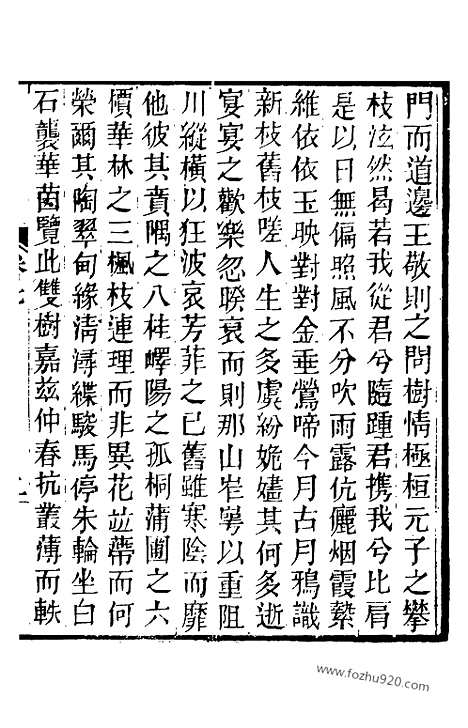 門而道邊王敬則之問樹情極桓元子之攀
枝泫然曷若我從君兮隨踵君携我兮比肩
是以日無偏照風不分吹雨露伉儷烟霞縶
維依依玉映對對金垂鶯啼今月古月鴉識
新枝舊枝嗟人生之多虞紛㛂嫿其何多逝
宴宴之歡樂忽睽哀而則那山岸㟧以重阻
川縱橫以狂波哀芳菲之已舊雖寒陰而靡
他彼其賁隅之八桂嶧陽之孤桐蒲圃之六
檟華林之三楓枝連理而非異花並蔕而何
榮爾其陶翠甸緣淸潯緤駿馬停朱輪坐白
石襲華茵覽此雙樹嘉兹仲春抗叢薄而軼
www.fozhu920.com